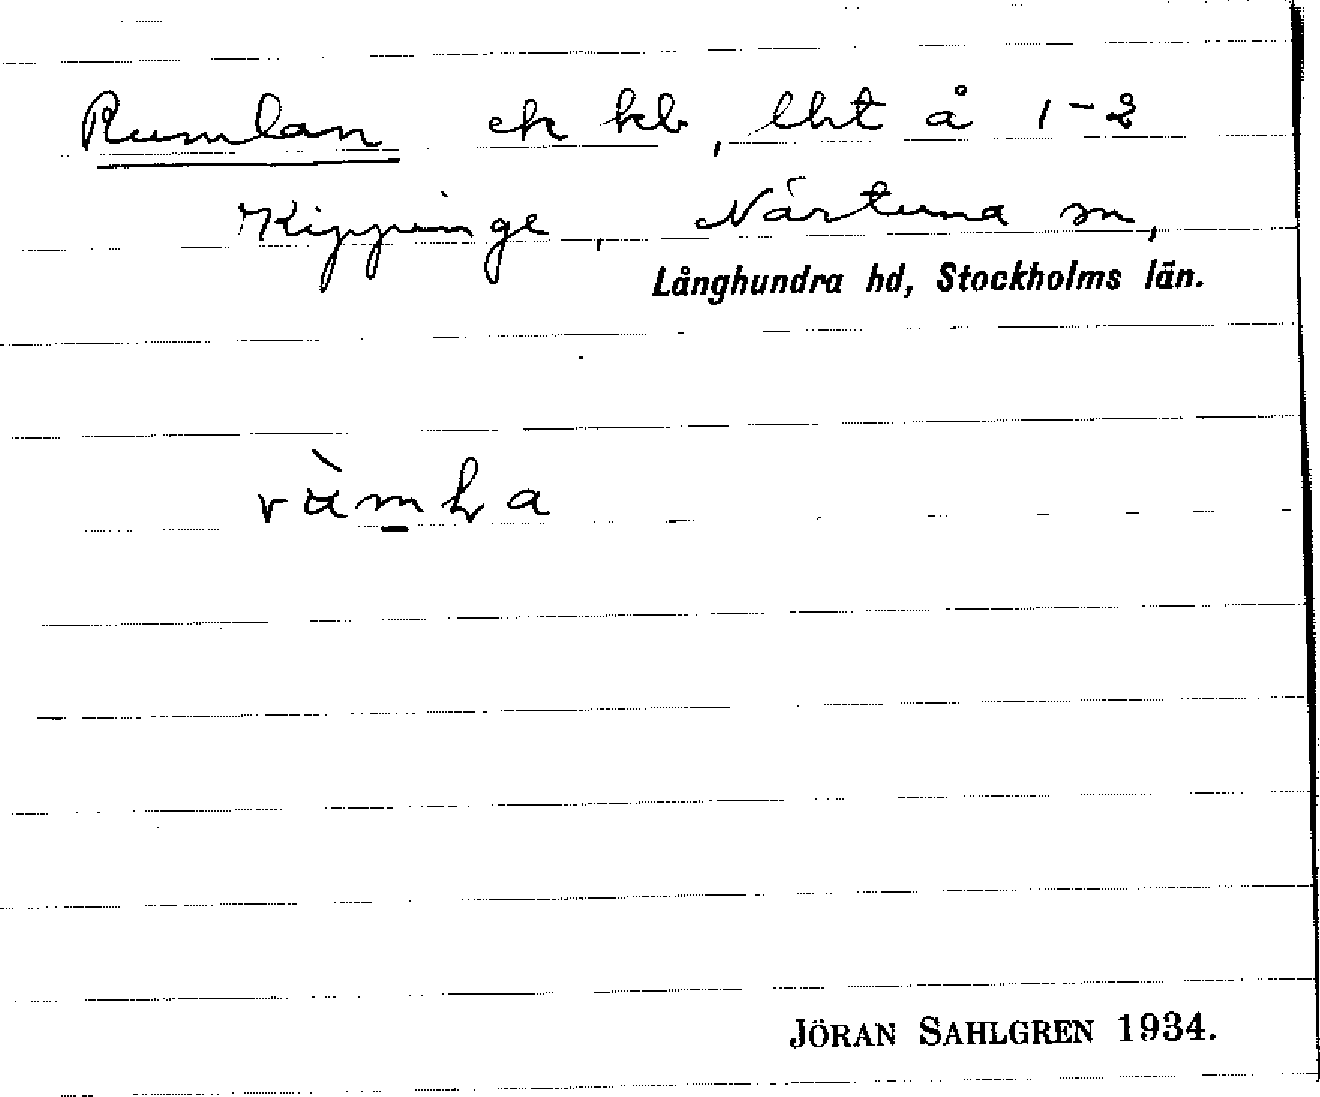 Rumlan ek kb, lht å 1-2
Kippinge, Närtuna sn,
Långhundra hd, Stockholms län.
JÖRAN SAHLGREN 1934.